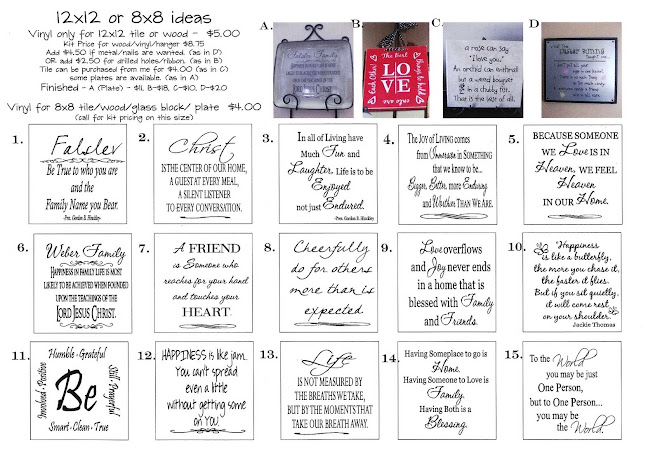 12x12 or 8x8 ideas
Vinyl only for 12x12 tile or wood - $5.00
Kit Price for wood/vinyl/hanger $8.75
Add $4.50 if metal/nails are wanted. (as in D)
OR add $2.50 for drilled holes/ribbon. (as in B)
Tile can be purchased from me for $4.00 (as in C)
some plates are available. (as in A)
Finished - A (Plate) - $11, B-$18, C-$10, D-$20
Vinyl for 8x8 tile/wood/glass block/ plate $4.00
(call for kit pricing on this size)
A.
B
The Best
LOVE
C
a rose can say
"I love you,"
An orchid can enthrall
but a weed bouquet
in a chubby fist,
That is the best of all.
D
1.
Falslev
Be True to who you are
and the
Family Name you Bear.
-Pres. Gordon B. Hinckley-
2.
Christ
IS THE CENTER OF OUR HOME,
A GUEST AT EVERY MEAL,
A SILENT LISTENER
TO EVERY CONVERSATION.
3.
In all of Living have
Much Fun and
Laughter. Life is to be
Enjoyed
not just Endured.
-Pres. Gordon B. Hinckley
4.
The Joy of Living comes
from Immersion in Something
that we know to be...
Bigger, Better, more Enduring
and Worthier Than We Are.
5.
BECAUSE SOMEONE
WE Love IS IN
Heaven, WE FEEL
Heaven
IN OUR Home.
6.
Weber Family
Happiness in family life is most
likely to be achieved when founded
upon the teachings of the
Lord Jesus Christ.
7.
A FRIEND
is Someone who
reaches for your hand
and touches your
HEART.
8.
Cheerfully
do for others
more than is
expected.
9.
Love overflows
and Joy never ends
in a home that is
blessed with Family
and Friends.
10.
"Happiness
is like a butterfly,
the more you chase it,
the faster it flies.
But if you sit quietly,
it will come rest
on your shoulder."
Jackie Thomas
11.
Humble · Grateful
Involved · Positive
Be
Still · Prayerful
Smart · Clean · True
12.
HAPPINESS is like jam.
You can't spread
even a little
without getting some
on YOU.
13.
Life
IS NOT MEASURED BY
THE BREATHS WE TAKE,
BUT BY THE MOMENTS THAT
TAKE OUR BREATH AWAY.
14.
Having Someplace to go is
Home.
Having Someone to Love is
Family.
Having Both is a
Blessing.
15.
To the World
you may be just
One Person,
but to One Person...
you may be
the World.